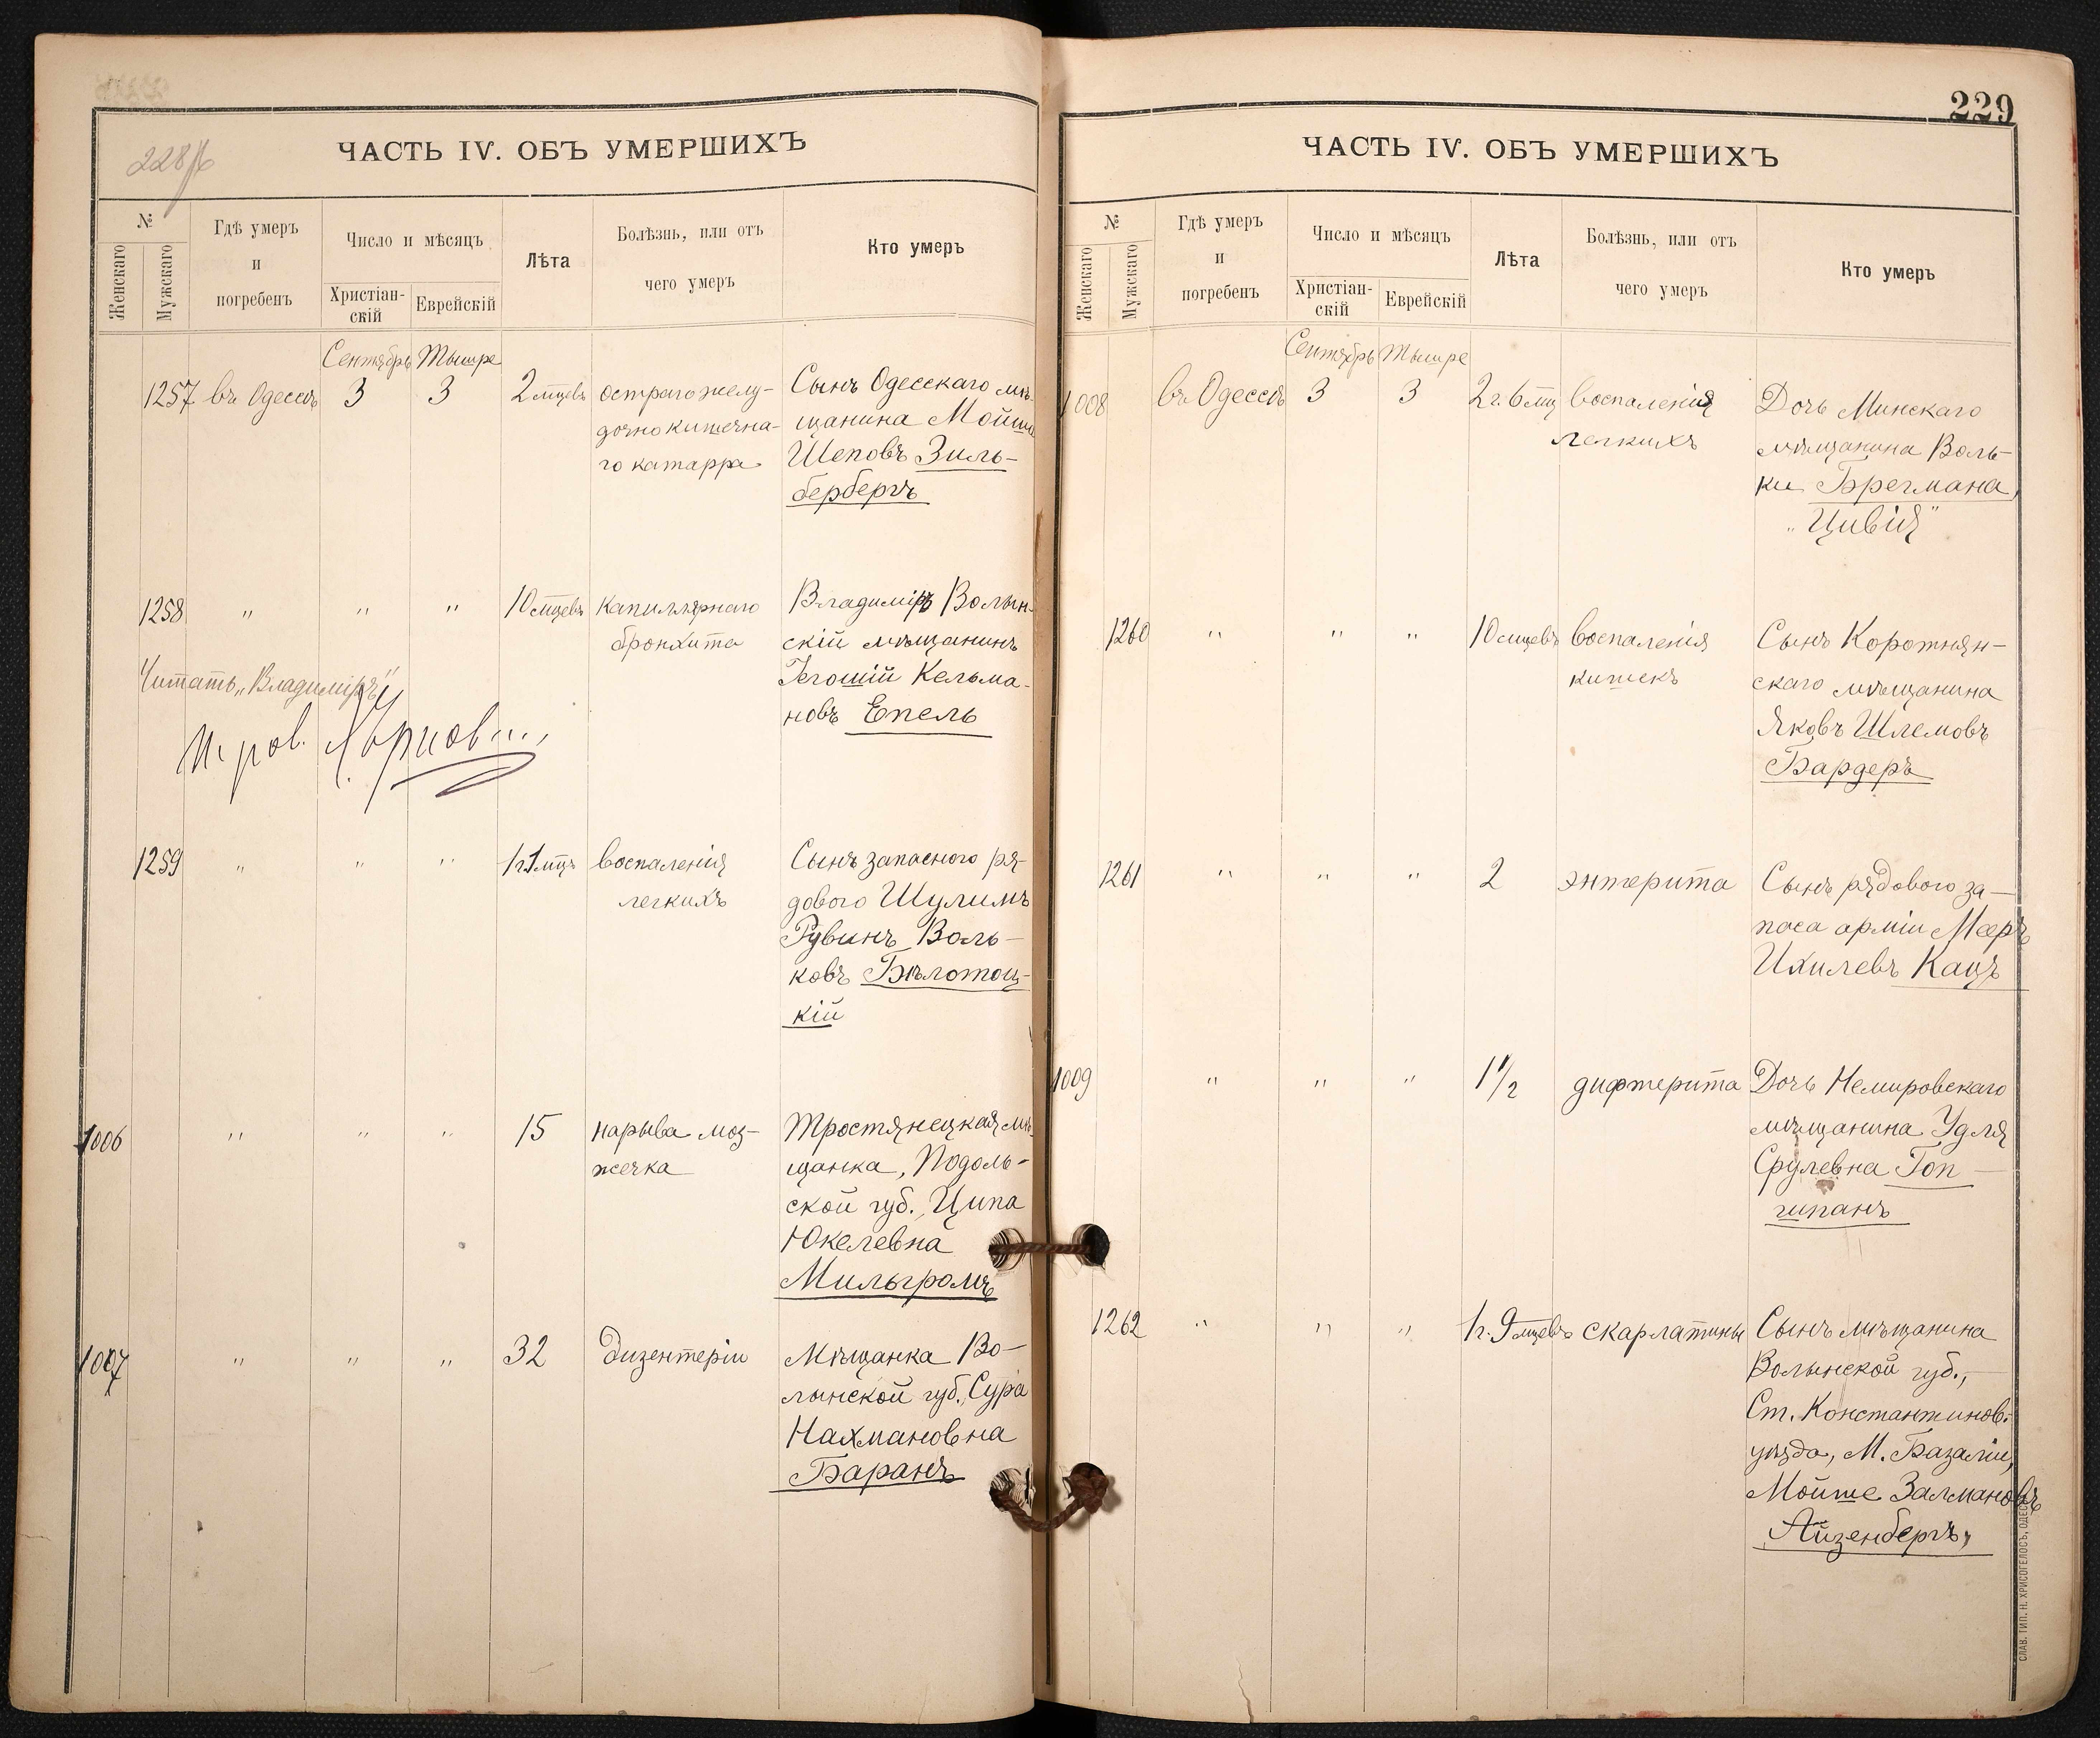 228 
ЧАСТЬ IV. ОБЪ УМЕРШИХЪ
№
Женскаго
Мужскаго
Гдѣ умеръ
и
погребенъ
Число и мѣсяцъ
Христіан-
скій
Еврейскій
Лѣта
Болѣзнь, или отъ
чего умеръ
Кто умеръ
Сентябрь Тышре
1257 въ Одессѣ 3 3 2 мцевъ
остраго желу-
дочно кишечна-
го катарра
Сынъ Одесскаго мѣ-
щанина Мойше
Шеповъ Зиль-
бербергъ
1258 " " " 10 мцевъ
капиллярнаго
бронхита
Владиміръ Волын-
скій мѣщанинъ
Гегошій Кельма-
новъ Епель
Читать „Владиміръ“
1259 " " " 1 г. 1 мцъ
воспаленія
легкихъ
Сынъ запасного ря-
дового Шулимъ
Рувинъ Воль-
ковъ Бѣлотоц-
кій
1006 " " " 15
нарыва моз-
жечка
Тростянецкая мѣ-
щанка, Подоль-
ской губ., Ципа
Юкелевна
Мильгромъ
1007 " " " 32
дизентеріи
Мѣщанка Во-
лынской губ., Сура
Нахмановна
Баранъ
229
ЧАСТЬ IV. ОБЪ УМЕРШИХЪ
№
Женскаго
Мужскаго
Гдѣ умеръ
и
погребенъ
Число и мѣсяцъ
Христіан-
скій
Еврейскій
Лѣта
Болѣзнь, или отъ
чего умеръ
Кто умеръ
Сентябрь Тышре
1008 въ Одессѣ 3 3 2 г. 6 мц
воспаленія
легкихъ
Дочь Минскаго
мѣщанина Воль-
ки Брегмана,
„Цивія“
1260 " " " 10 мцевъ
воспаленія
кишекъ
Сынъ Коротнян-
скаго мѣщанина
Яковъ Шлемовъ
Бардеръ
1261 " " " 2
энтерита
Сынъ рядового за-
паса арміи Мееръ
Ихилевъ Кацъ
1009 " " " 1 1/2
дифтерита
Дочь Немировскаго
мѣщанина Удля
Срулевна Гоп-
шпанъ
1262 " " " 1 г. 9 мцевъ
скарлатины
Сынъ мѣщанина
Волынской губ.,
Ст. Константинов.
уѣзда, М. Базаліи,
Мойше Залмановъ
Айзенбергъ,
СЛАВ. ТИП. Н. ХРИСОГЕЛОСЪ, ОДЕССА